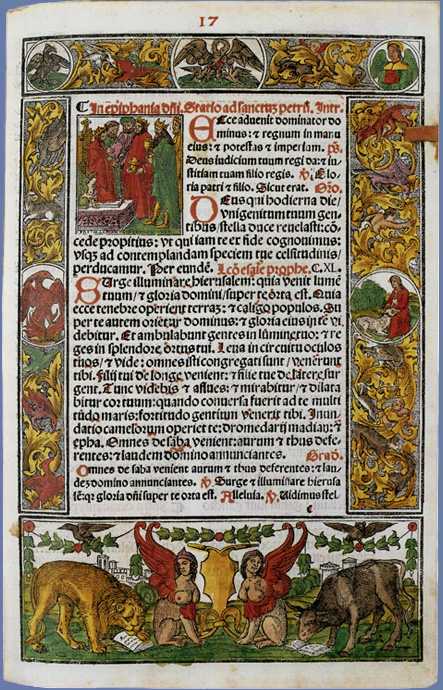 17
C In ep̄iphania dn̄i. Statio ad sanctuȝ petrū. Intr.
Ecce aduenit dominator do
minus: ⁊ regnum in manu
eius: ⁊ potestas ⁊ imperium. p̄s.
Deus iudicium tuum regi da: ⁊ iu-
stitiam tuam filio regis. ℣. Glo-
ria patri ⁊ filio. Sicut erat. Oro.
Deus qui hodierna die/
vnigenitum tuum gen
tibus/stella duce reuelasti: cō
cede propitius: vt qui iam te ex fide cognouimus:
vsqȝ ad contemplandam speciem tue celsitudinis/
perducamur. Per eundē. Lcō esaie prophe. C. XL.
Surge illuminare hierusalem: quia venit lumē
tuum/⁊ gloria domini/super te orta est. Quia
ecce tenebre operient terraȝ: ⁊ caligo populos. Su
per te autem orietur dominus: ⁊ gloria eius in te vi
debitur. Et ambulabunt gentes in lumine tuo: ⁊ re
ges in splendore ortus tui. Leua in circuitu oculos
tuos/⁊ vide: omnes isti congregati sunt/venerunt
tibi. filij tui de longe venient: ⁊ filie tue de latere sur
gent. Tunc videbis ⁊ afflues: ⁊ mirabitur/⁊ dilata
bitur cor tuum: quando conuersa fuerit ad te multi
tudo maris: fortitudo gentium venerit tibi. Inun
datio camelorum operiet te: dromedarij madian: ⁊
epha. Omnes de saba venient: aurum ⁊ thus defe-
rentes: ⁊ laudem domino annunciantes. Grad̄.
Omnes de saba venient aurum ⁊ thus deferentes: ⁊ lau-
deȝ domino annunciantes. ℣. Surge ⁊ illuminare hierusa
lē: qȝ gloria dn̄i super te orta est. Alleluia. ℣. Uidimus stel
c